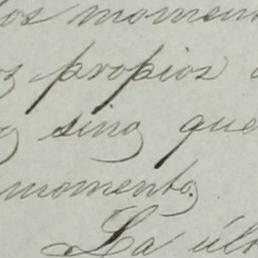 los momen
propios
sino que
momento.
La últ